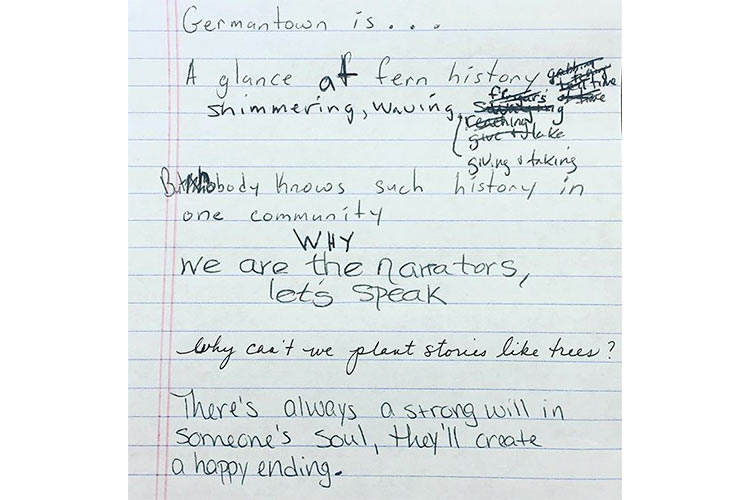 Germantown is...
A glance at fern history
shimmering, waving,
fingers
reaching
give & take
giving & taking
But nobody knows such history in
one community
WHY
we are the narrators,
let's speak
Why can't we plant stories like trees?
There's always a strong will in
someone's soul, they'll create
a happy ending.